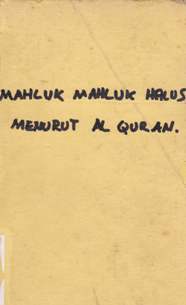 MAHLUK MAHLUK HALUS
MENURUT AL QUR.AN.